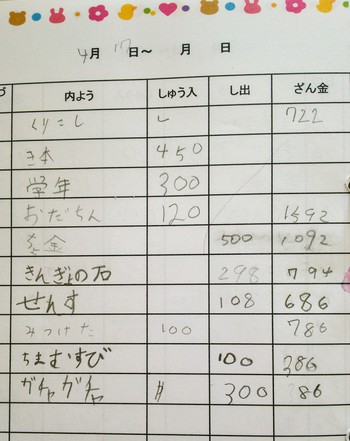 4月 17日〜 月 日
づ 内よう しゅう入 し出 ざん金
くりこし 722
き本 450
学年 300
おだちん 120 1592
ちょ金 500 1092
きんぎょの石 298 794
せんす 108 686
みつけた 100 786
ちまむすび 100 386
ガチャガチャ 〃 300 86